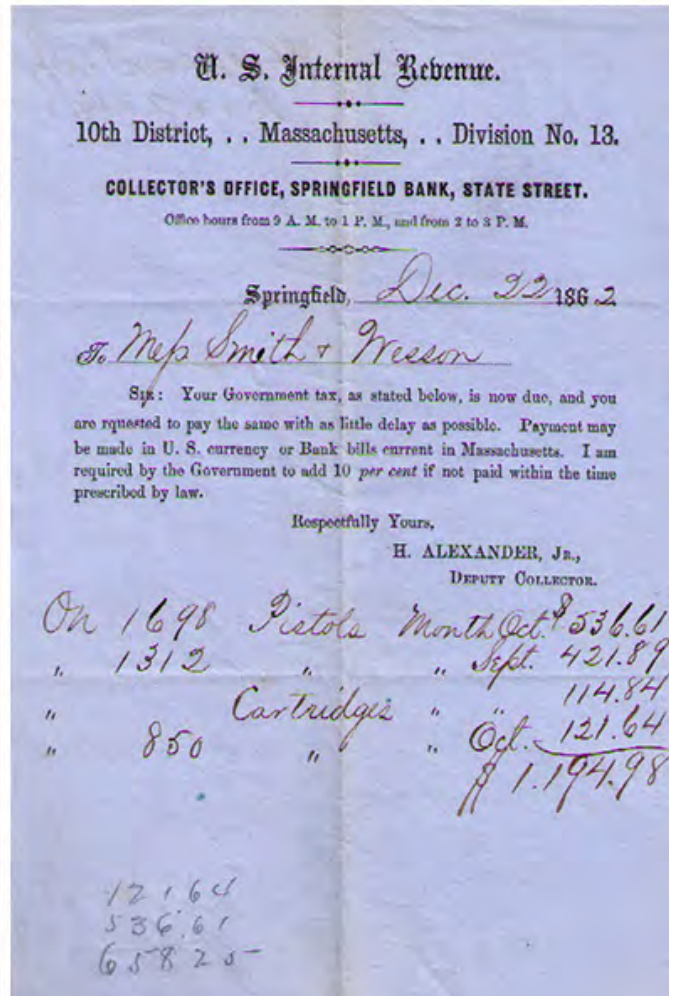 U. S. Internal Revenue.
10th District, . . Massachusetts, . . Division No. 13.
COLLECTOR'S OFFICE, SPRINGFIELD BANK, STATE STREET.
Office hours from 9 A. M. to 1 P. M., and from 2 to 3 P. M.
Springfield, Dec. 22 1862
To Mess Smith & Wesson
SIR: Your Government tax, as stated below, is now due, and you
are rquested to pay the same with as little delay as possible. Payment may
be made in U. S. currency or Bank bills current in Massachusetts. I am
required by the Government to add 10 per cent if not paid within the time
prescribed by law.
Respectfully Yours,
H. ALEXANDER, JR.,
DEPUTY COLLECTOR.
On 1698 Pistols Month Oct. $536.61
" 1312 " " Sept. 421.89
" Cartridges " " 114.84
" 850 " " Oct. 121.64
$1.194.98
12164
536.61
65825